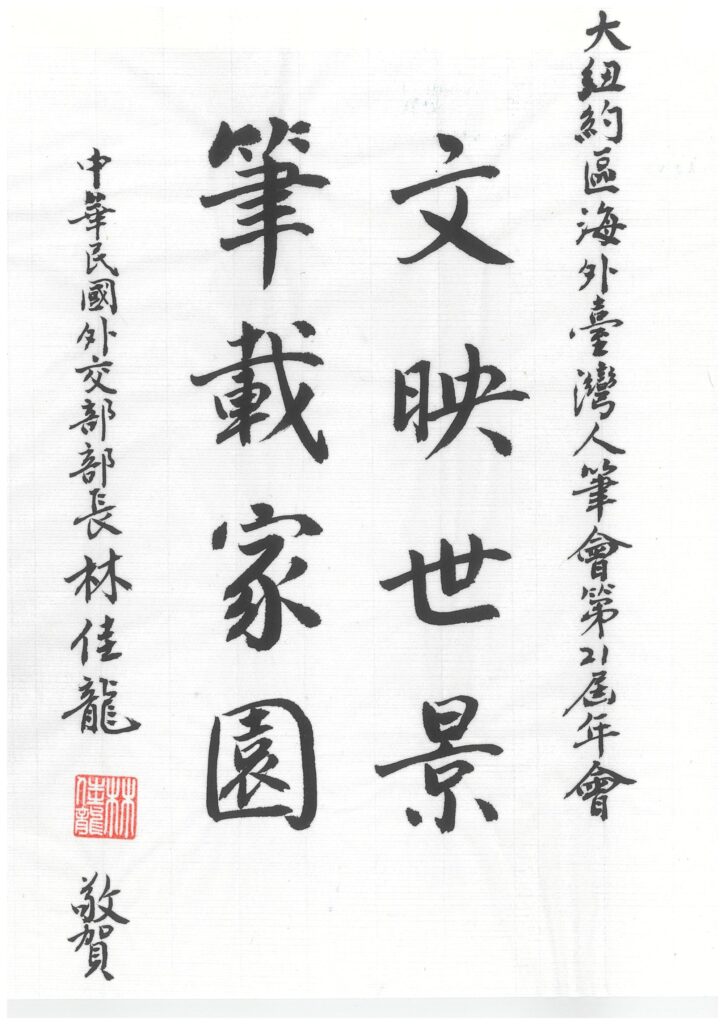 大紐約區海外臺灣人筆會第21屆年會
文映世景
筆載家園
中華民國外交部部長林佳龍
林佳龍
敬賀